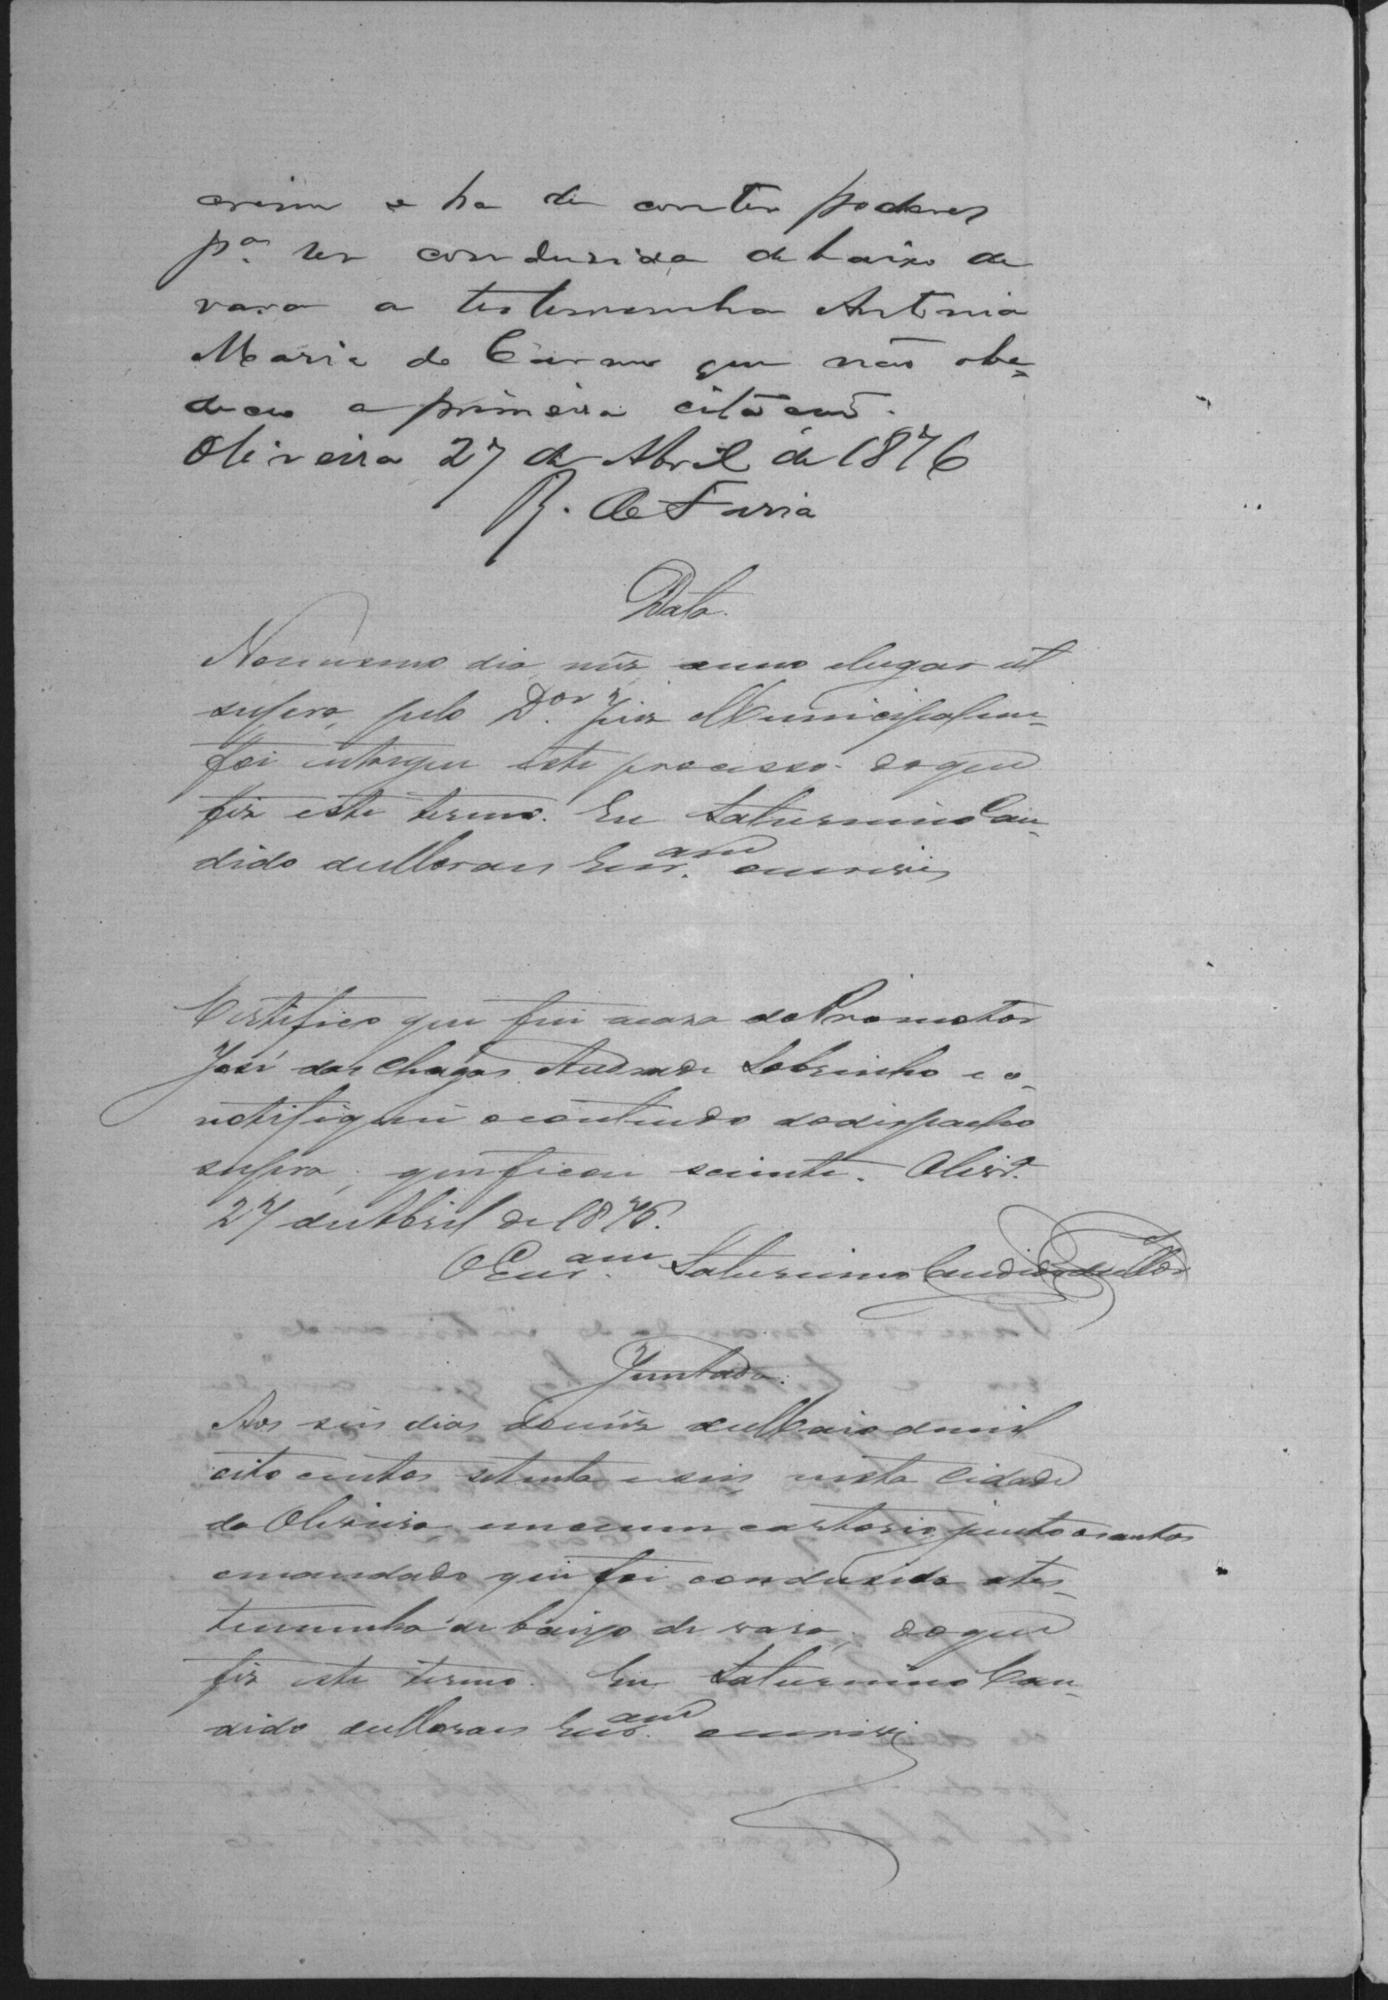 crime e ha de conter poderes
pª. ser condusida debaixo de
vara a testemunha Antonia
Maria do Carmo que não obe=
deceo a primeira citação.
Oliveira 27 de Abril de 1876
R. de Faria
Data.
No mesmo dia, mez, anno elugar ut
supra, pelo D.or Juiz Municipal me
foi entregue este processo. do que
fiz este termo. Eu Saturnino Can-
dido de Moraes Escr.am escrivi
Certifico que fui acasa do Promotor
José das Chagas Andrade Sobrinho e o
notifiquei o contiudo do dispacho
supra, que ficou sciente. Olivr.ª
27 de Abril de 1876.
O Escr.am Saturnino Candido de Mor
Juntada.
Aos seis dias do mez de Maio de mil
oito centos setenta e seis, nesta Cidade
da Oliveira, em meu cartorio junto os autos
o mandado que foi condusida a tes-
temunha de baixo de vara, do que
fiz este termo. Eu Saturnino Can-
dido de Moraes Escr.am escrivi